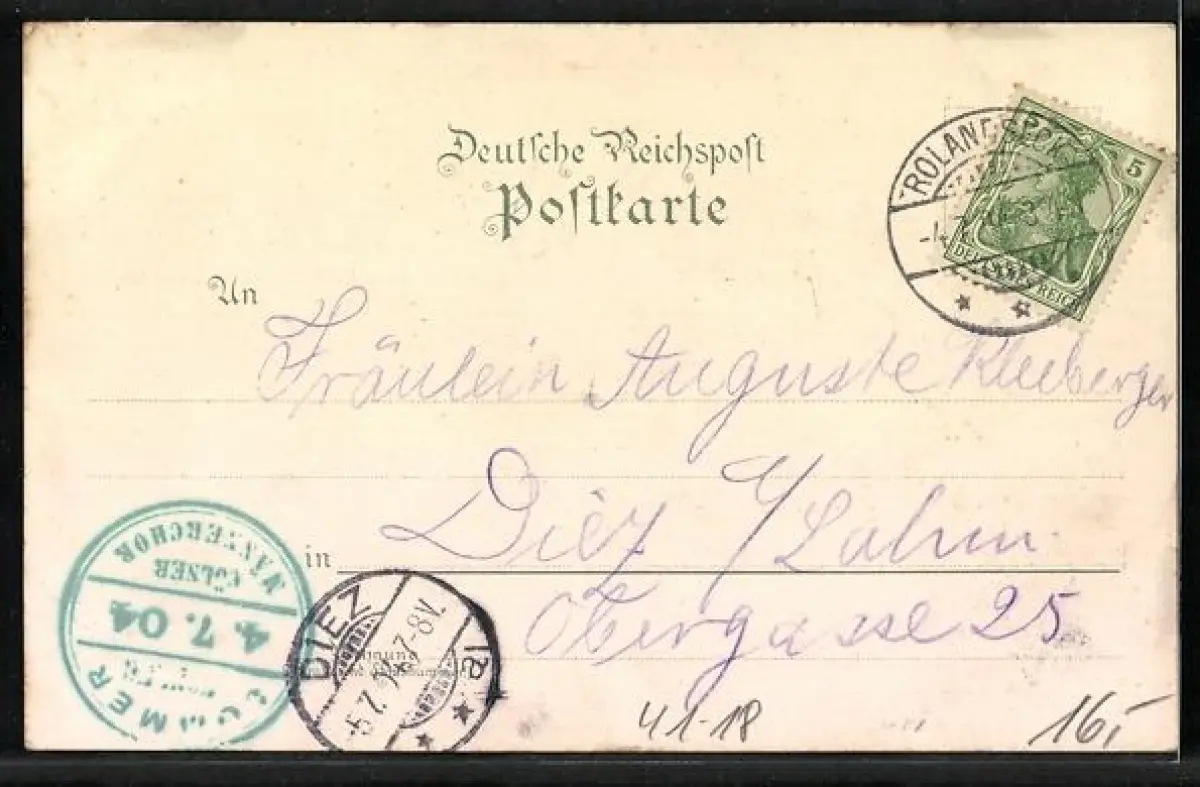 Deutsche Reichspost
Postkarte
ROLANDSECK
5
DEUTSCHES REICH
An
Fräulein Auguste Kleeberger
Diez /Lahn
in
Obergasse 25
CÖLNER
MÄNNERCHOR
4.7.04
DIEZ
5.7. 7-8V.
41-18
16,-